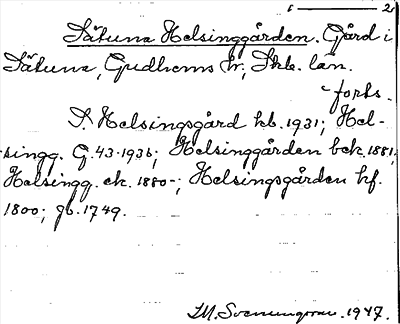 1 — 2
Sätuna Helsinggården. Gård i
Sätuna, Gudhems hr, Skb. län.
forts.
S. Helsingsgård kb. 1931; Hel-
singg. G. 43 · 1936; Helsinggården bek. 1881;
Helsingg. ek. 1880-; Helsingsgården hf.
1800; jb. 1749.
I.M. Svenungsson. 1947.